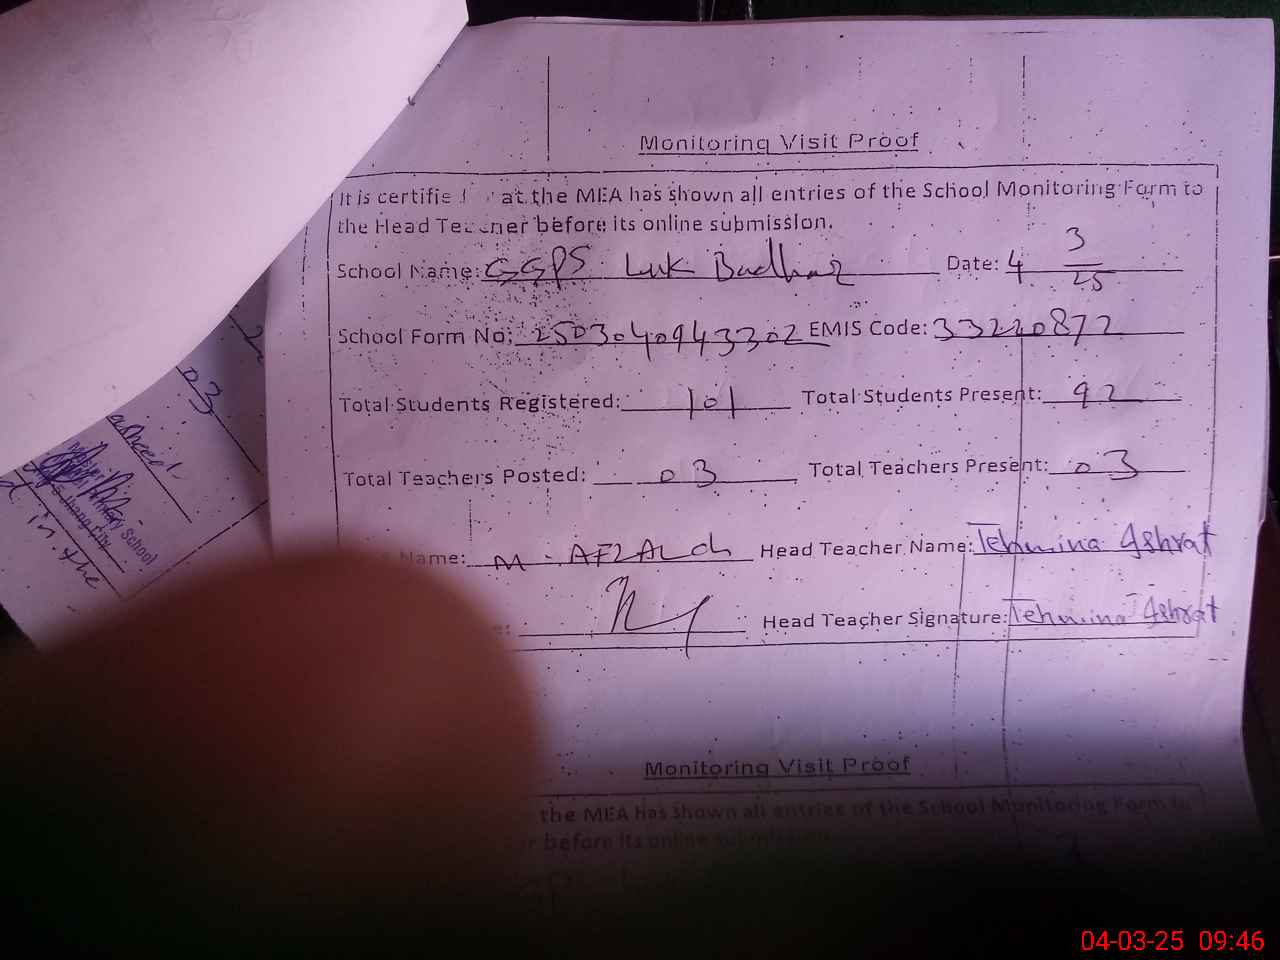 Monitoring Visit Proof
It is certifie at the MEA has shown all entries of the School Monitoring Form to
the Head Teacher before its online submission.
School Name: GGPS Luk Badhar Date: 4 3/25
School Form No: 250304094 3302 EMIS Code: 33220872
Total Students Registered: 101 Total Students Present: 92
Total Teachers Posted: 03 Total Teachers Present: 03
Name: M. AFZAL ch Head Teacher Name: Tehmina Ishrat
Head Teacher Signature: Tehmina Ishrat
Monitoring Visit Proof
the MEA has shown all entries of the School Monitoring Form to
r before its online submission.
03
School
in the
04-03-25 09:46